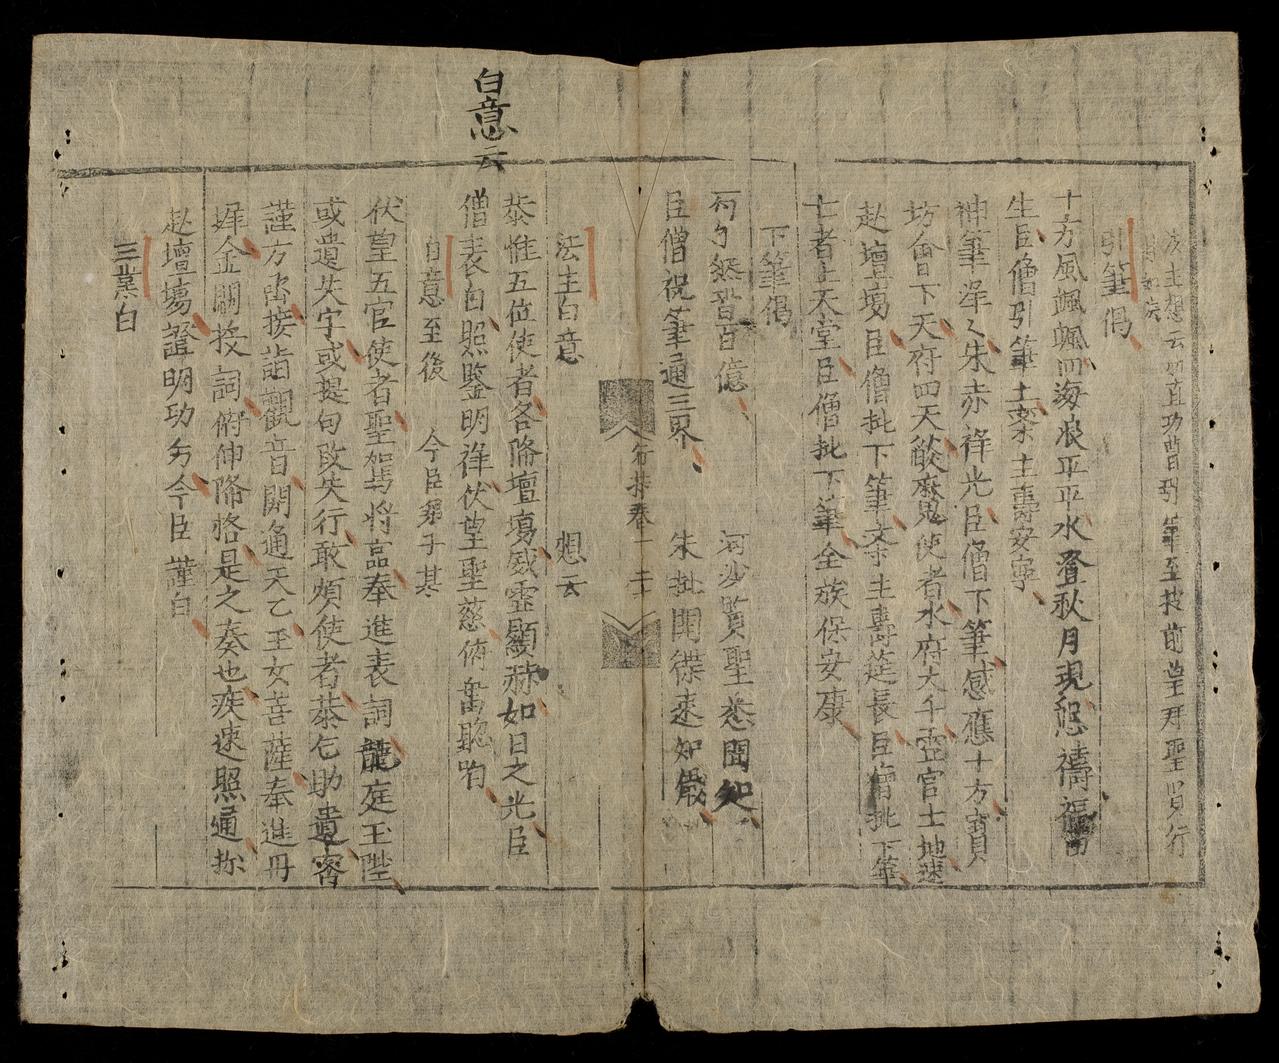 法主想云四直功曹引筆至披前望拜聖賢行
引筆偈
十方風颯颯四海浪平平水登秋月現懇禱福留
生臣僧引筆土察主壽安寧
神筆濢々朱赤祥光臣僧下筆感應十方寶
坊會下天府四天𦦨魔使者水府大千壼官土地速
赴壇場臣僧批下筆亲生壽莚長臣僧批下筆
亡者上天堂臣僧批下筆全族保安康
下筆偈
百億 河沙賢聖悉聞知
臣僧祝筆通三界 朱批開楪速知儼
行持卷一 二十
法主白意 想云
恭惟五位使者各降壇場威靈顯赫如日之光臣
僧表白照鑒明祥伏望聖慈俯畱聦
白意云
白意至後 今臣弟子某
伏望五官使者聖駕將臨奉進表詞龍庭玉陛
或遺失字或提句段失行敢煩使者恭乞助遺審
謹方啇接詣觀音開通天乙玉女菩薩奉進丹
墀金闕投詞俯伸降格是之奏也疾速照通於
赴壇場證明功旁今臣謹白
三業白